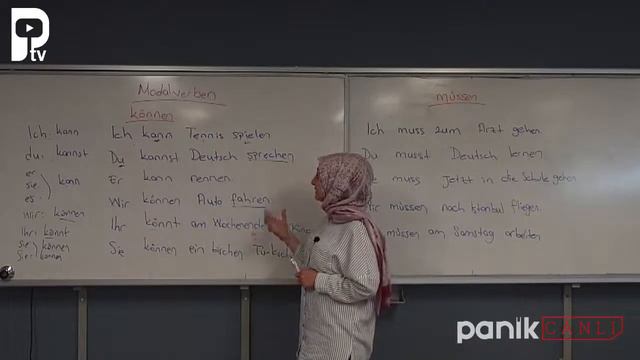 P
tv
Modalverben
können
Ich: kann
du: kannst
er
sie
es
kann
wir: können
Ihr: könnt
sie: können
Sie: können
Ich kann Tennis spielen
Du kannst Deutsch sprechen
Er kann rennen.
Wir können Auto fahren
Ihr könnt am Wochenende
Sie können ein bischen
müssen
Ich muss zum Arzt gehen.
Du musst Deutsch lernen
muss Jetzt in die Schule gehen
Wir müssen nach Istanbul fliegen.
müssen am Samstag arbeiten
panik CANLI